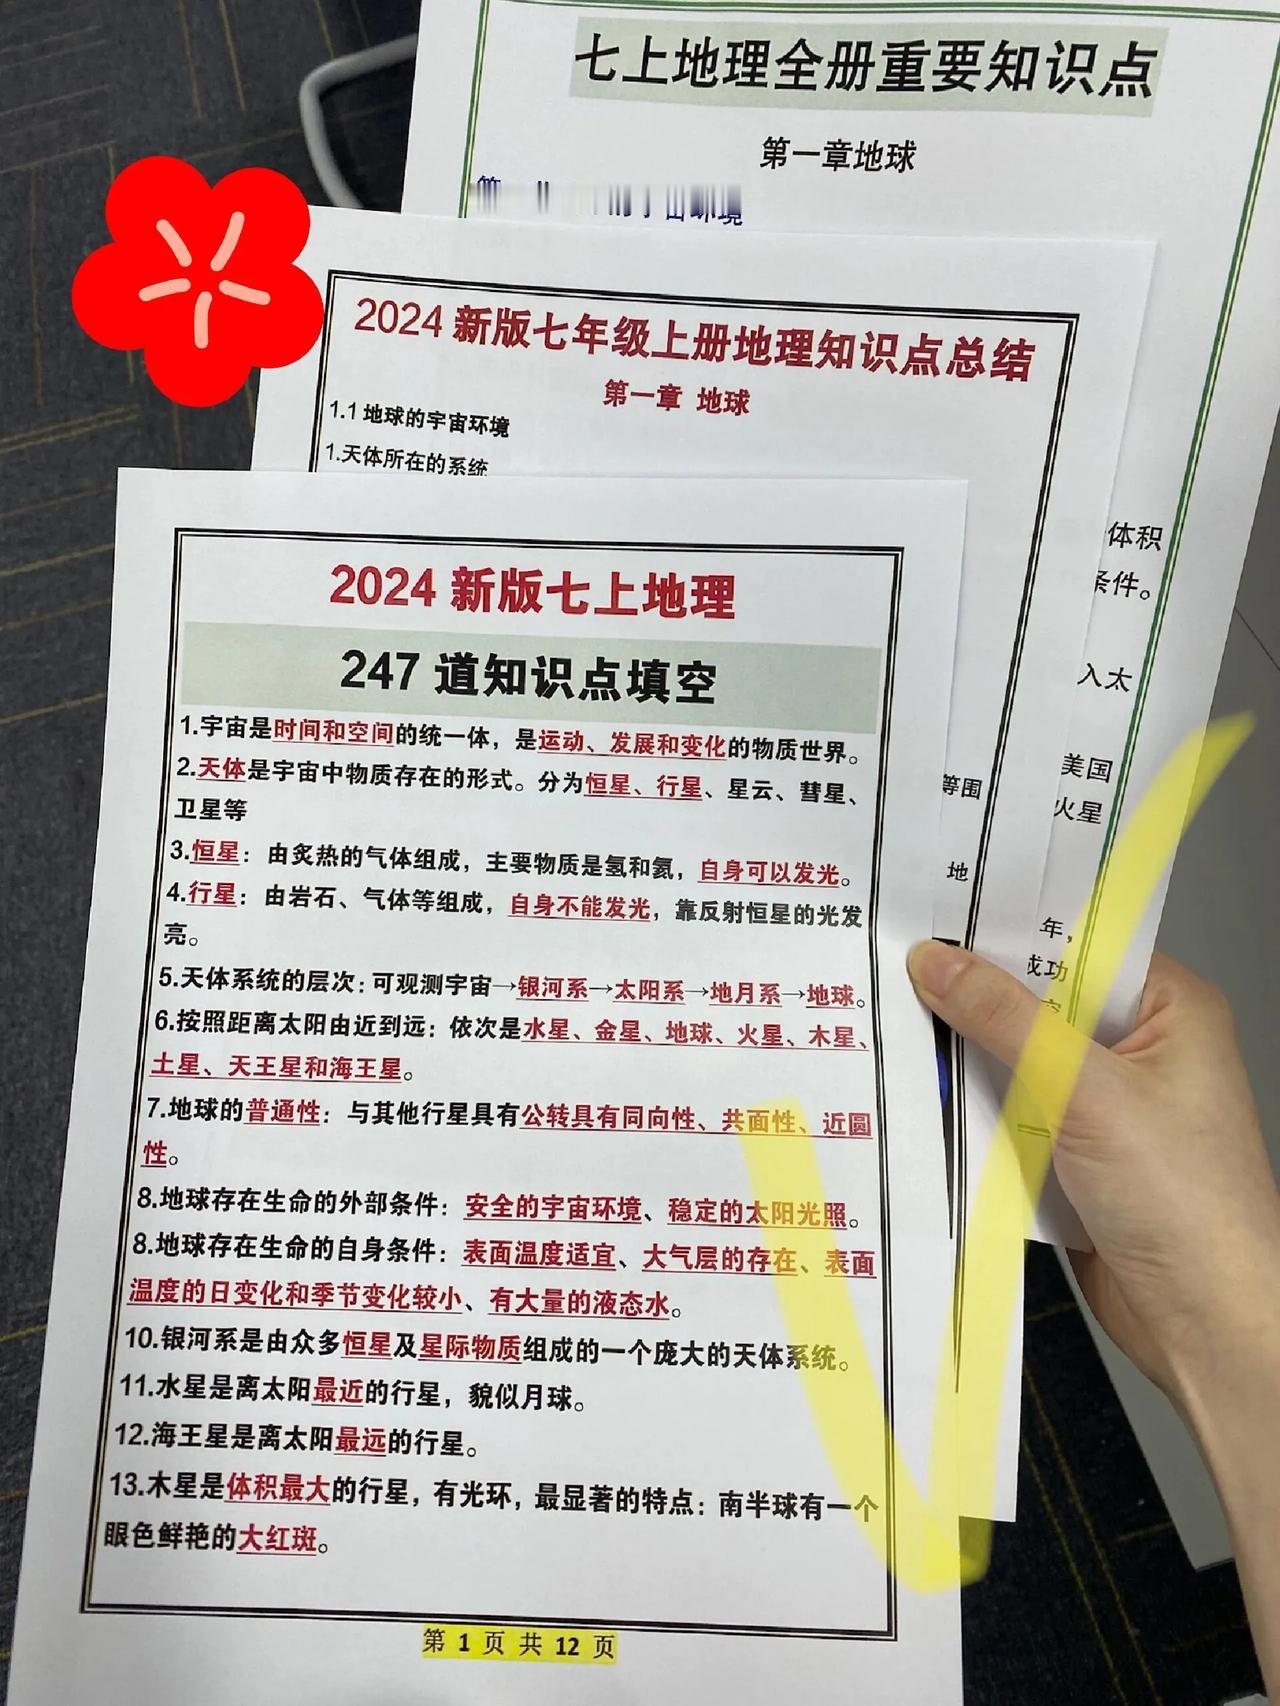 七上地理全册重要知识点
第一章地球
体积
条件。
入太
美国
火星
年，
成功
2024 新版七年级上册地理知识点总结
第一章 地球
1.1 地球的宇宙环境
1.天体所在的系统
等围
地
2024 新版七上地理
247 道知识点填空
1.宇宙是时间和空间的统一体，是运动、发展和变化的物质世界。
2.天体是宇宙中物质存在的形式。分为恒星、行星、星云、彗星、
卫星等
3.恒星：由炙热的气体组成，主要物质是氢和氦，自身可以发光。
4.行星：由岩石、气体等组成，自身不能发光，靠反射恒星的光发
亮。
5.天体系统的层次：可观测宇宙→银河系→太阳系→地月系→地球。
6.按照距离太阳由近到远：依次是水星、金星、地球、火星、木星、
土星、天王星和海王星。
7.地球的普通性：与其他行星具有公转具有同向性、共面性、近圆
性。
8.地球存在生命的外部条件：安全的宇宙环境、稳定的太阳光照。
8.地球存在生命的自身条件：表面温度适宜、大气层的存在、表面
温度的日变化和季节变化较小、有大量的液态水。
10.银河系是由众多恒星及星际物质组成的一个庞大的天体系统。
11.水星是离太阳最近的行星，貌似月球。
12.海王星是离太阳最远的行星。
13.木星是体积最大的行星，有光环，最显著的特点：南半球有一个
眼色鲜艳的大红斑。
第 1 页 共 12 页